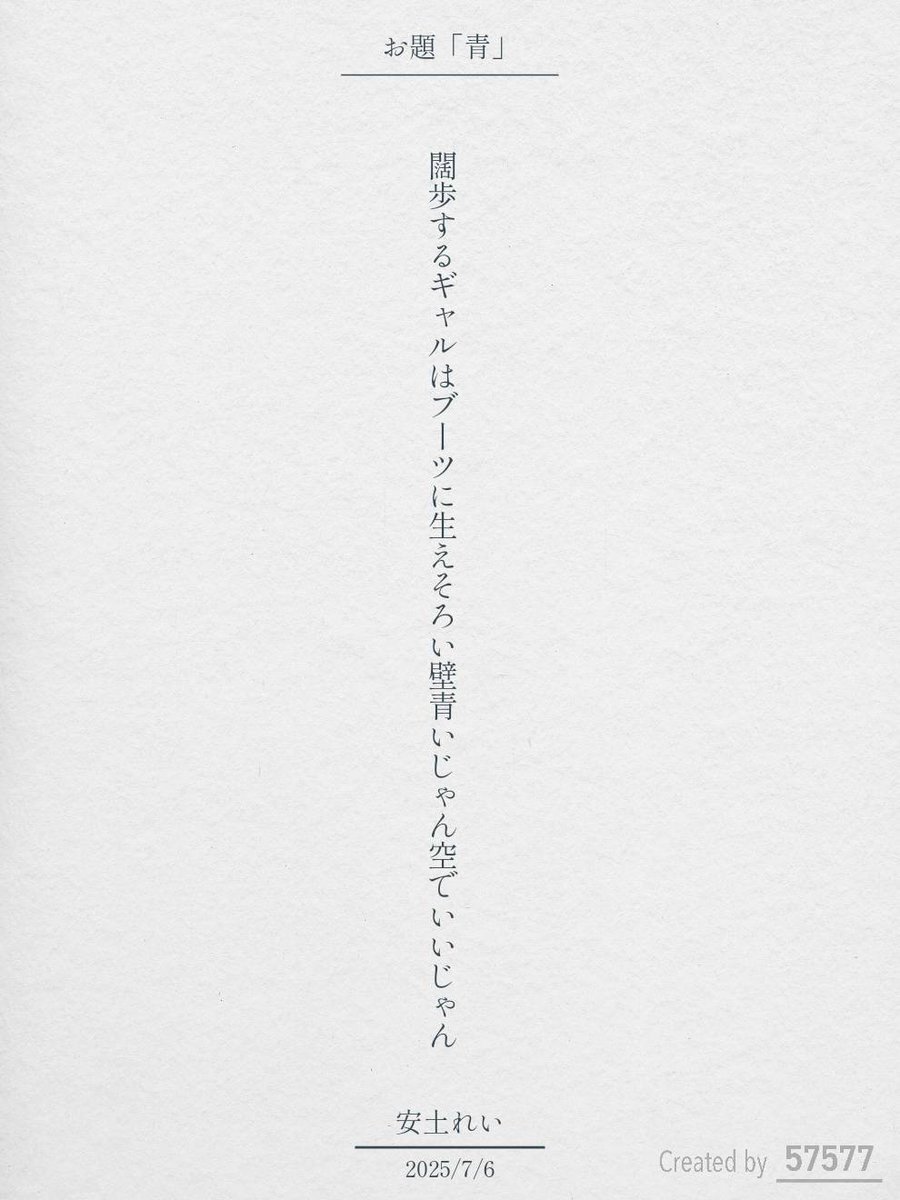 お題「青」
闊歩するギャルはブーツに生えそろい壁青いじゃん空でいいじゃん
安土れい
2025/7/6
Created by 57577